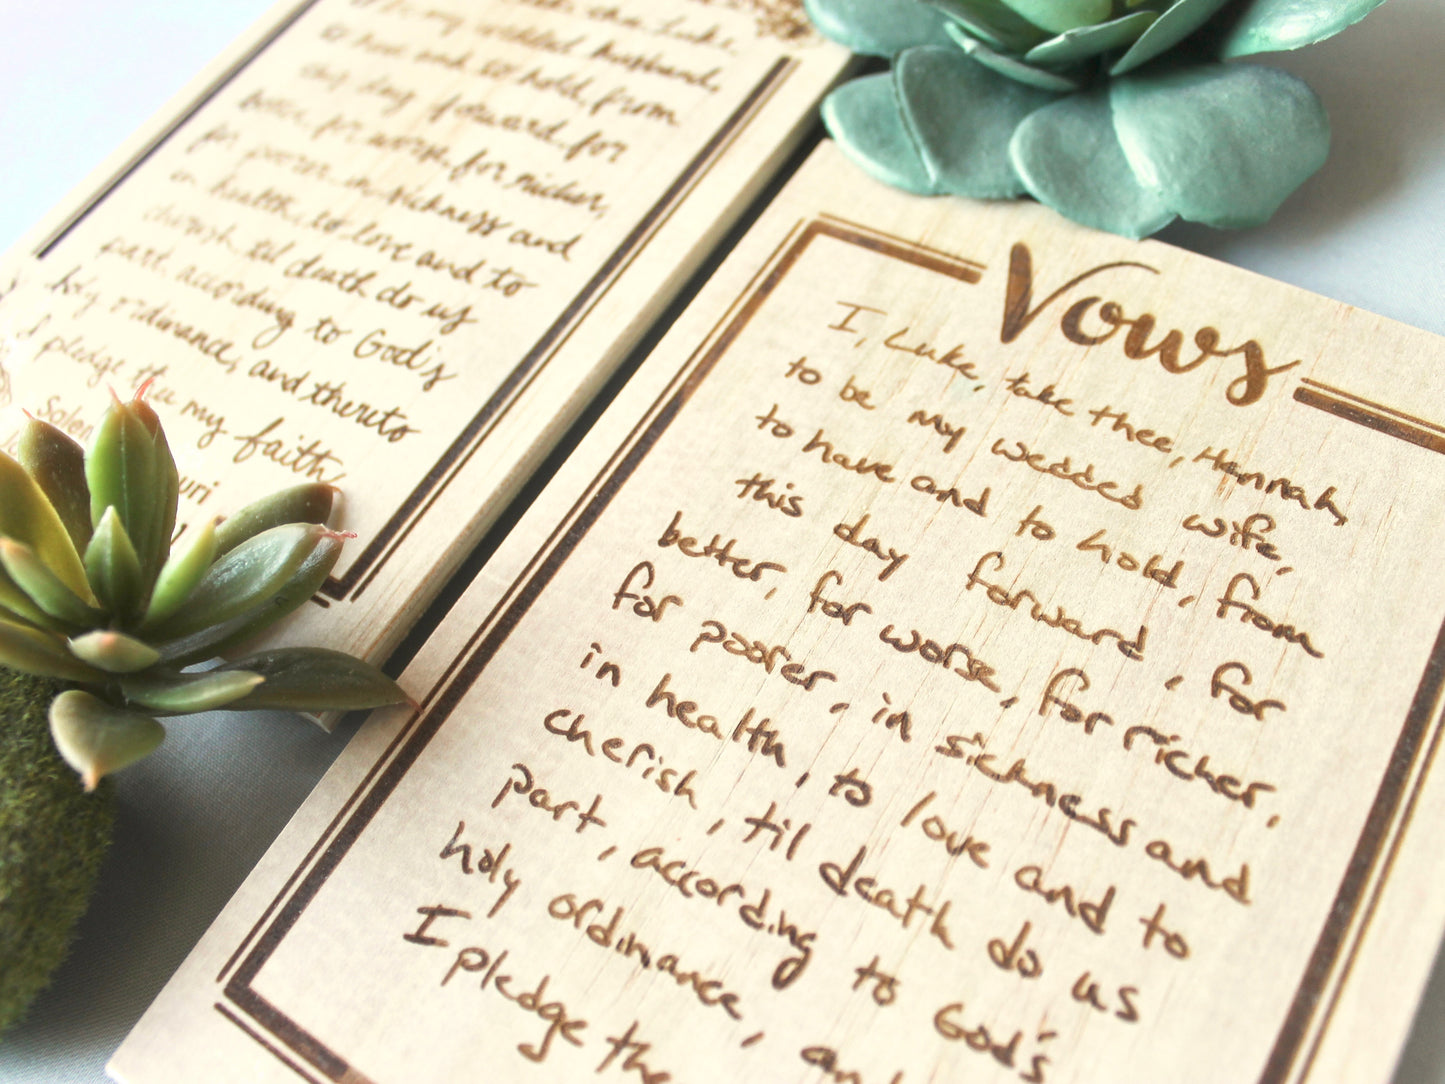 the Luke
my wedded husband,
to have and to hold, from
day forward, for
for worse, for richer,
for poorer, in sickness and
in health, to love and to
cherish, til death do us
part, according to God's
holy ordinance, and thereto
I pledge thee my faith,
uri
Vows
I, Luke, take thee, Hannah,
to be my wedded wife,
to have and to hold, from
this day forward, for
better, for worse, for richer,
for poorer, in sickness and
in health, to love and to
cherish, til death do us
part, according to God's
holy ordinance, and
I pledge the